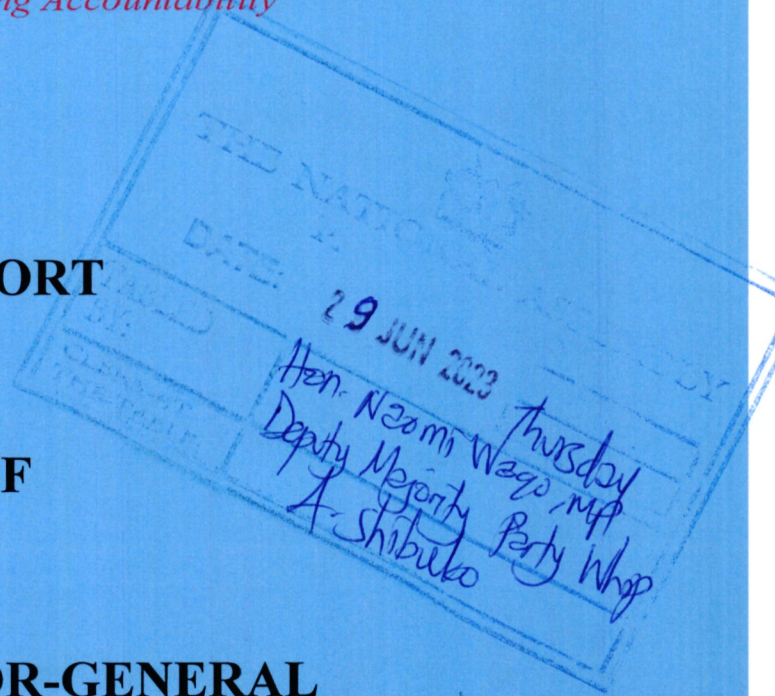 ng Accountability
THE NATIONAL ASSEMBLY
DATE: 29 JUN 2023 Thursday
TABLED
BY: Hon. Naomi Waqo, MP,
Deputy Majority Party Whip
CLERK AT
THE-TABLE: A. Shibuko
ORT
F
OR-GENERAL